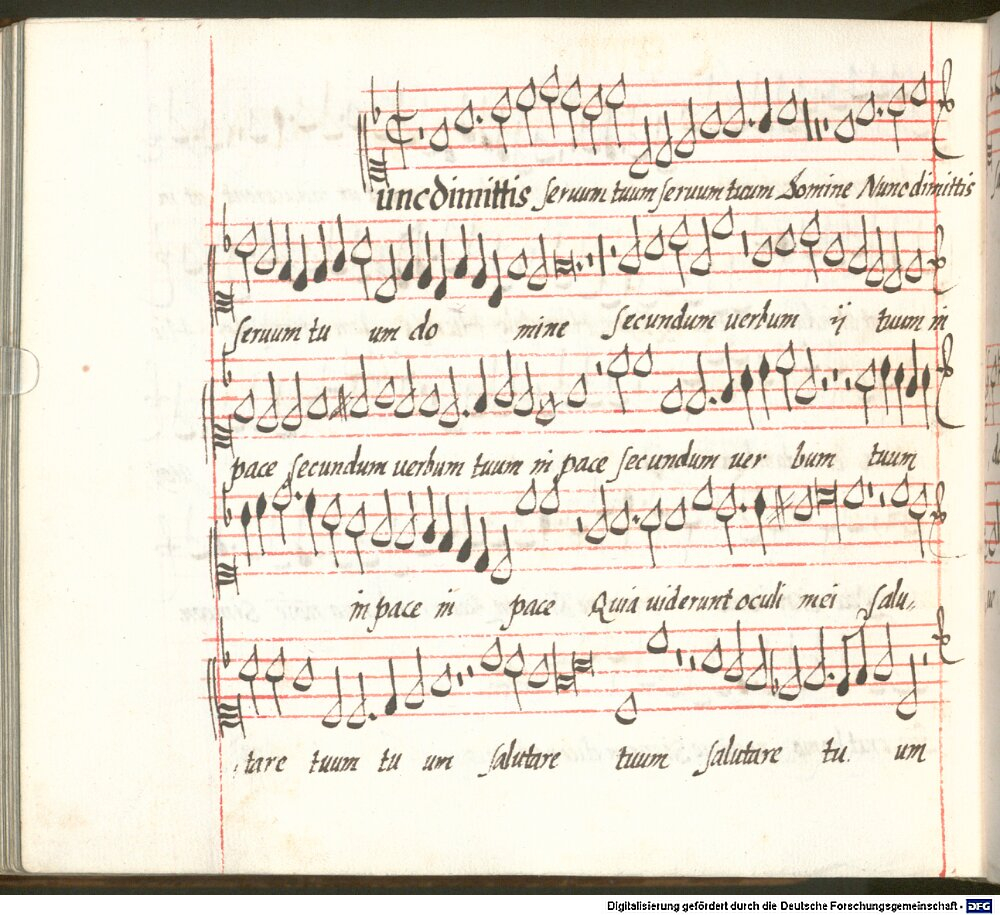 uncdimittis seruum tuum seruum tuum Domine Nunc dimittis
seruum tu um do mine secundum uerbum ij tuum in
pace secundum uerbum tuum in pace secundum uer bum tuum
in pace in pace Quia uiderunt oculi mei salu,
tare tuum tu um salutare tuum salutare tu um
Digitalisierung gefördert durch die Deutsche Forschungsgemeinschaft - DFG